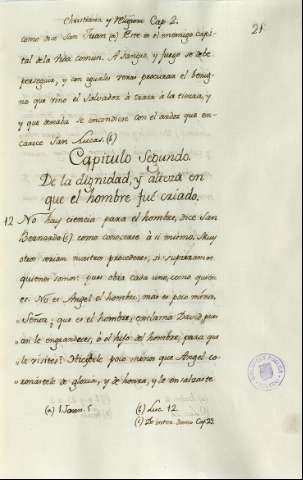 Christiana y Religiosa Cap. 2.
21
como dice San Juan (a) Este es el enemigo capi-
tal de la vida comun. A sangre y fuego se debe
perseguir, y con iguales veras procurar el benig-
no que vino el Salvador à traer à la tierra, y
y que deseaba se encendiese con el ardor que en-
carece San Lucas. (b)
Capitulo Segundo.
De la dignidad, y altura en
que el hombre fué criado.
12 No hay ciencia para el hombre, dice San
Bernardo (c) como conocerse à si mismo. Muy
otros serian nuestros procederes, si supieramos
quienes somos: pues obra cada uno, como quien
es. No es Angel el hombre, mas es poco menos,
Señor, que es el hombre, exclama David, pues
asi le engrandeces, ò el hijo del hombre, para que
le visites? Hicistele poco menos que Angel co-
ronastele de gloria, y de honra, y le ensalzaste
(a) 1. Joan. 5.
(b) Luc. 12.
(c) De inter. Domo Cap. 23.